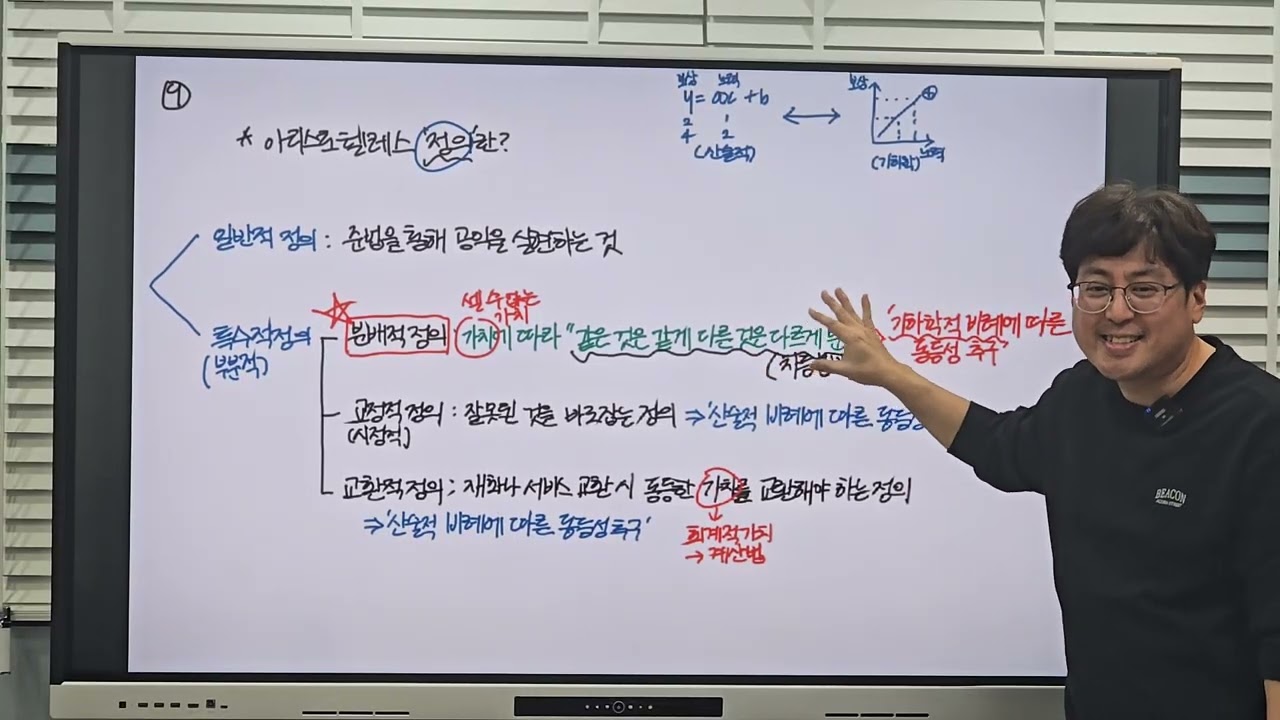 ⑨
* 아리스토텔레스 '정의'란?
보상 노력
y = ax + b
2 1
4 2
(산술적)
보상
노력
(기하학)
일반적 정의 : 준법을 통해 공익을 실현하는 것
특수적정의
(부분적)
셀 수 없는
가치
분배적 정의 : 가치에 따라 "같은 것은 같게 다른 것은 다르게
'기하학적 비례에 따른
동등성 추구'
교정적 정의 : 잘못된 것을 바로잡는 정의 ⇒ '산술적 비례에 따른 동등성
(시정적)
교환적 정의 : 재화나 서비스 교환 시 동등한 가치를 교환해야 하는 정의
⇒ '산술적 비례에 따른 동등성 추구'
회계적 가치
→ 계산법
BEACON